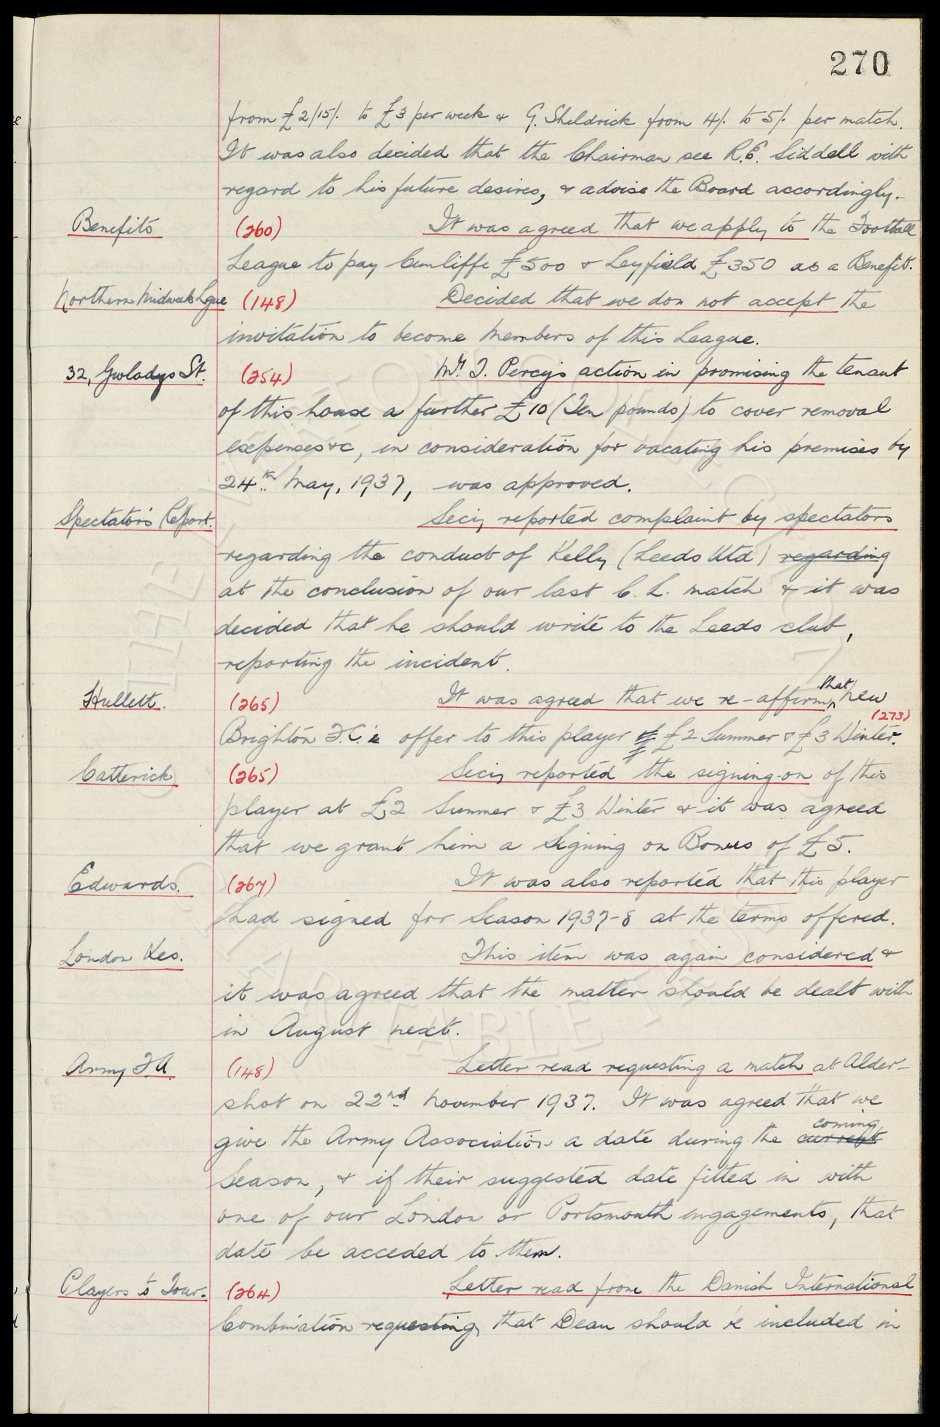 270
from £2/15/- to £3 per week & G. Sheldrick from 4/- to 5/- per match.
It was also decided that the Chairman see R.E. Siddell with
regard to his future desires, & advise the Board accordingly.
Benefits (260) It was agreed that we apply to the Football
League to pay Cunliffe £500 & Leyfield £350 as a Benefit.
Northern Midweek Lgue (148) Decided that we don not accept the
invitation to become Members of this League.
32, Gwladys St. (254) Mr. T. Percy's action in promising the tenant
of this house a further £10 (Ten pounds) to cover removal
expenses &c, in consideration for vacating his premises by
24th May, 1937, was approved.
Spectators Report. Secy reported complaint by spectators
regarding the conduct of Kelly (Leeds Utd) regarding
at the conclusion of our last C.L. match & it was
decided that he should write to the Leeds club,
reporting the incident.
Hullett. (265) It was agreed that we re-affirm that New
(273)
Brighton F.C.'s offer to this player of £2 Summer & £3 Winter.
Catterick (265) Secy reported the signing-on of this
player at £2 Summer & £3 Winter & it was agreed
that we grant him a Signing on Bonus of £5.
Edwards. (267) It was also reported that this player
had signed for Season 1937-8 at the terms offered.
London Res. This item was again considered &
it was agreed that the matter should be dealt with
in August next.
Army F.A. (148) Letter read requesting a match at Alder-
shot on 22nd November 1937. It was agreed that we
give the Army Association a date during the current coming
Season, & if their suggested date fitted in with
one of our London or Portsmouth engagements, that
date be acceded to them.
Players to Tour. (264) Letter read from the Danish International
Combination requesting that Dean should e included in